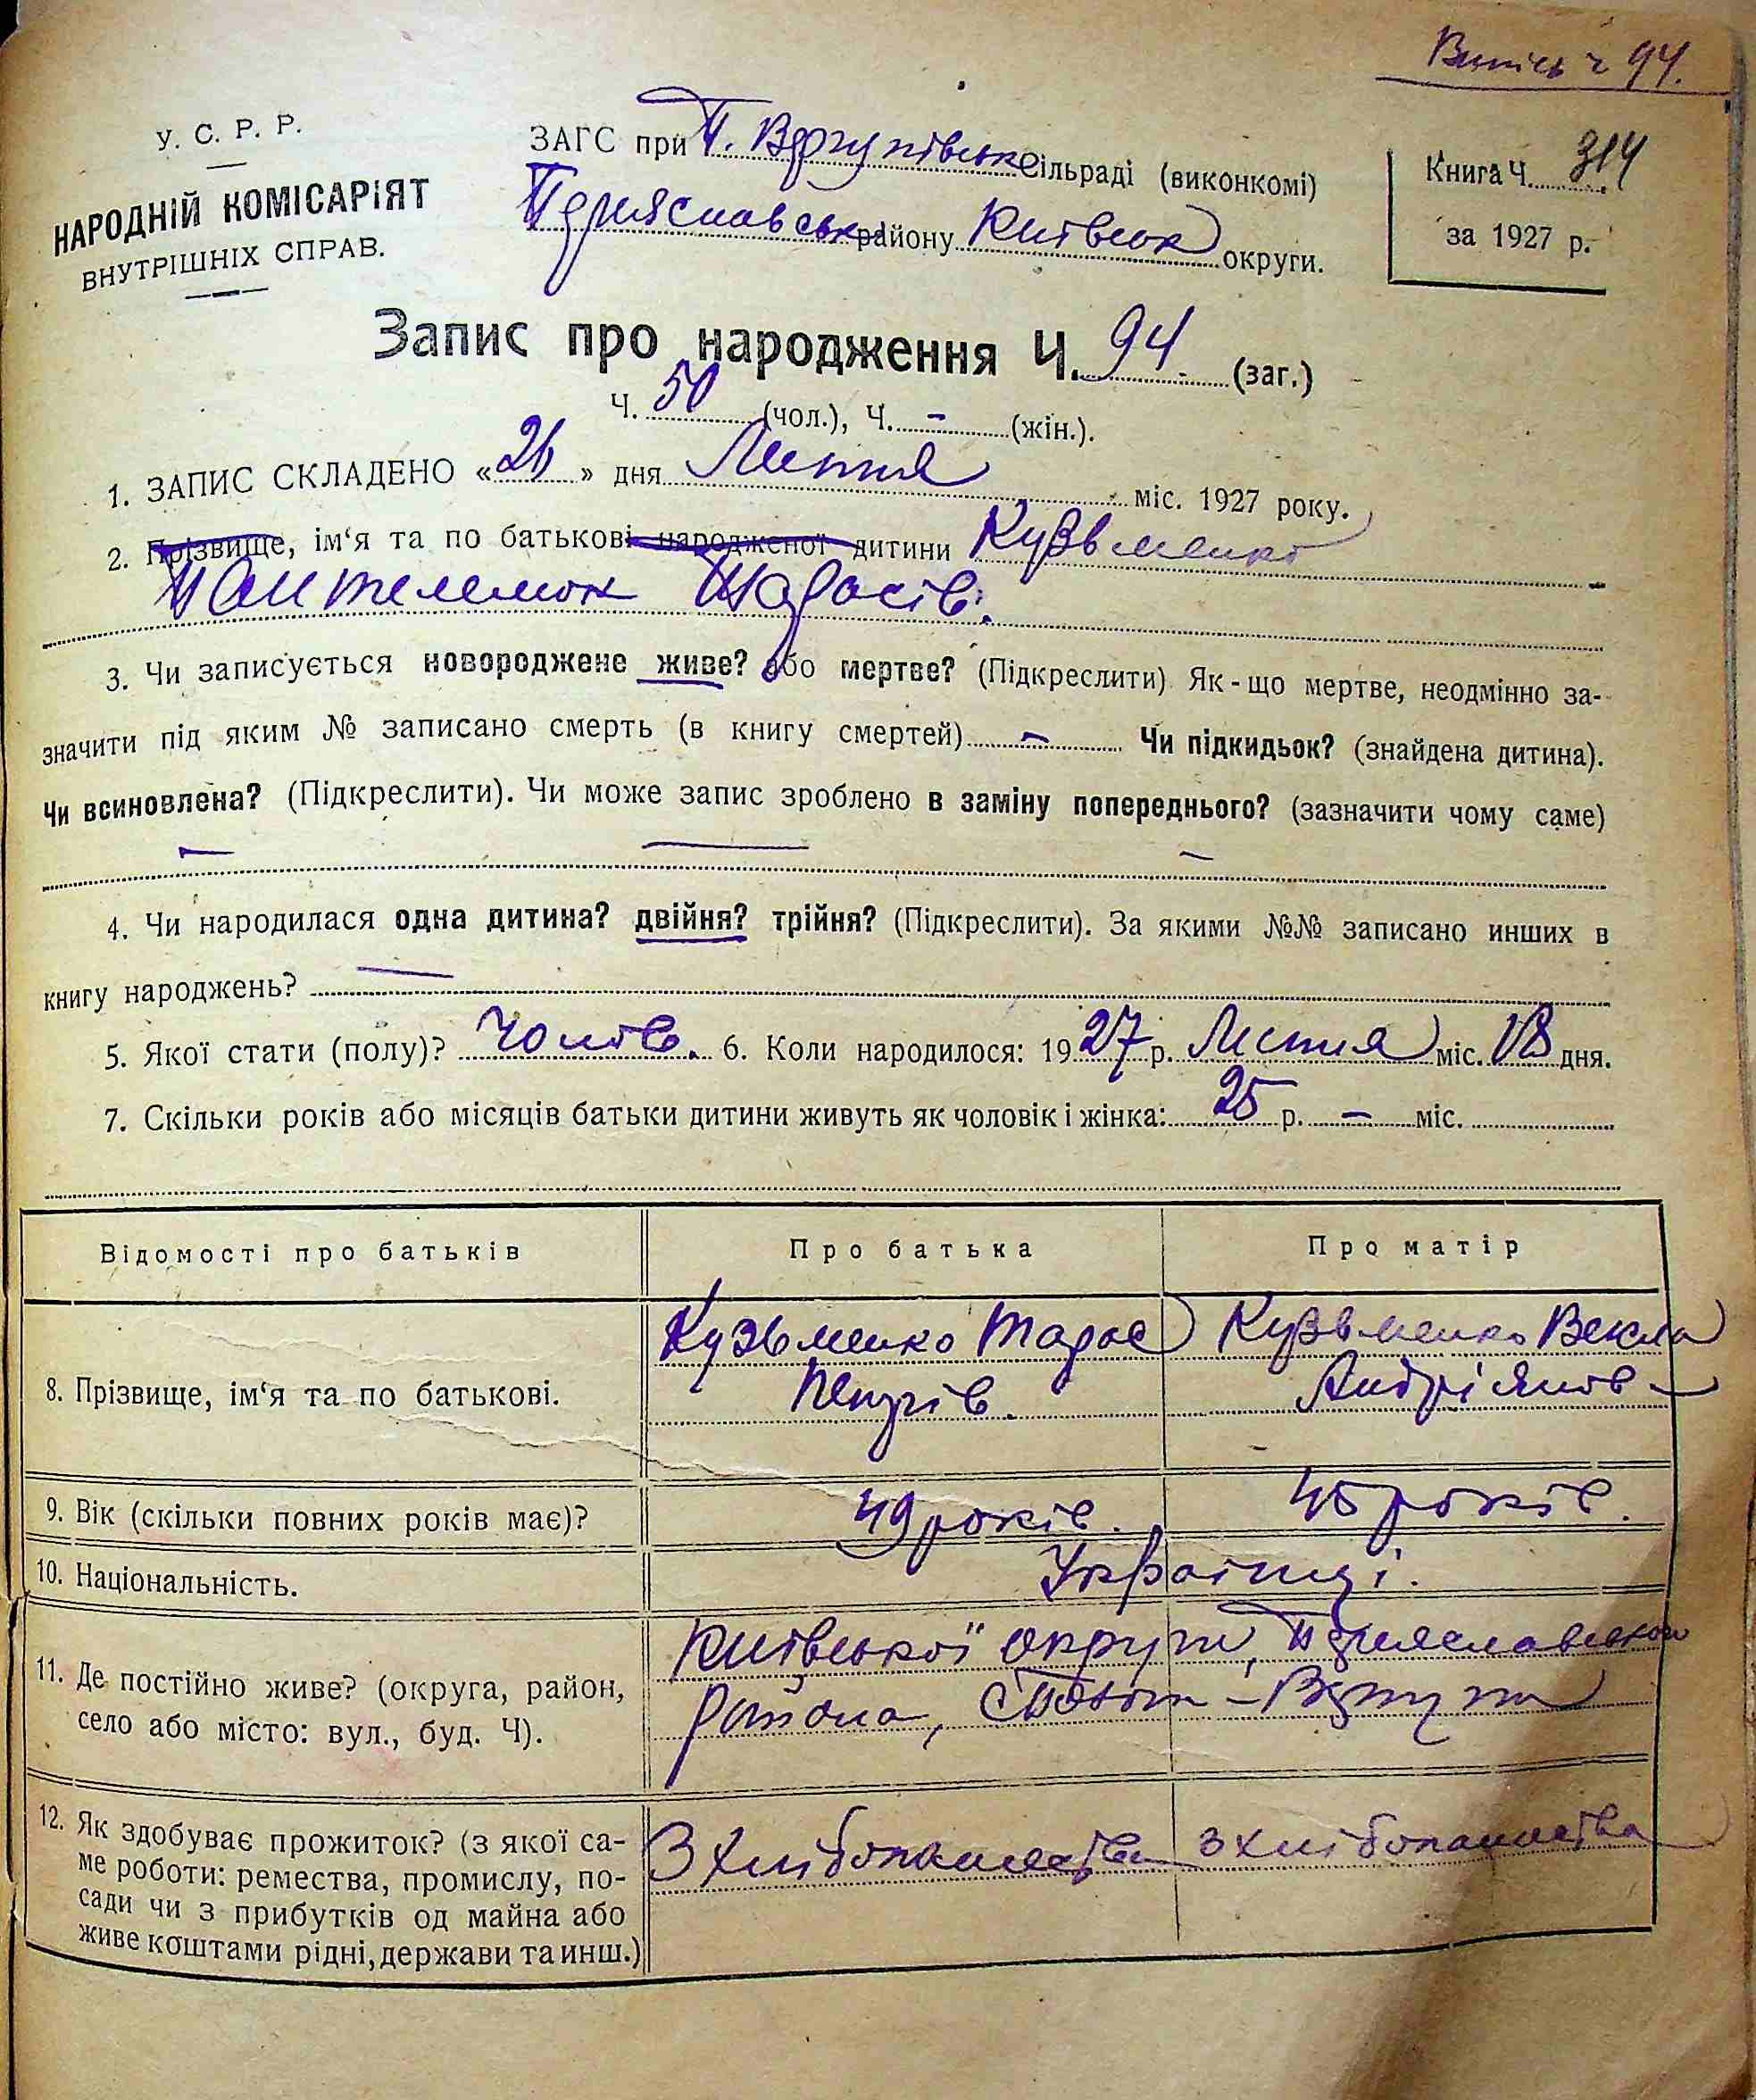 Випись ч 94.
У. С. Р. Р.
НАРОДНІЙ КОМІСАРІЯТ
ВНУТРІШНІХ СПРАВ.
ЗАГС при П. Вергунівськ сільраді (виконкомі)
Переяславськ району Київськ округи.
Книга Ч. 314
за 1927 р.
Запис про народження Ч. 94. (заг.)
Ч. 50 (чол.), Ч. - (жін.).
1. ЗАПИС СКЛАДЕНО «26» дня Липня міс. 1927 року.
2. Прізвище, ім‘я та по батькові народженої дитини Кузьменко
Пантелемон Тарасів.
3. Чи записується новороджене живе? або мертве? (Підкреслити) Як-що мертве, неодмінно за-
значити під яким № записано смерть (в книгу смертей) - Чи підкидьок? (знайдена дитина).
Чи всиновлена? (Підкреслити). Чи може запис зроблено в заміну попереднього? (зазначити чому саме)
4. Чи народилася одна дитина? двійня? трійня? (Підкреслити). За якими №№ записано инших в
книгу народжень?
5. Якої стати (полу)? Чолов. 6. Коли народилося: 1927 р. Липня міс. 18 дня.
7. Скільки років або місяців батьки дитини живуть як чоловік і жінка: 25 р. - міс.
Відомості про батьків Про батька Про матір
8. Прізвище, ім‘я та по батькові. Кузьменко Тарас Кузьменко Векла
Андріянов
9. Вік (скільки повних років має)? 49 років. 45 років.
10. Національність. Українці.
11. Де постійно живе? (округа, район,
село або місто: вул., буд. Ч).
Київської округи, Переяславського
района,
12. Як здобуває прожиток? (з якої са-
ме роботи: ремества, промислу, по-
сади чи з прибутків од майна або
живе коштами рідні, держави та инш.)
З хліборобства З хліборобства